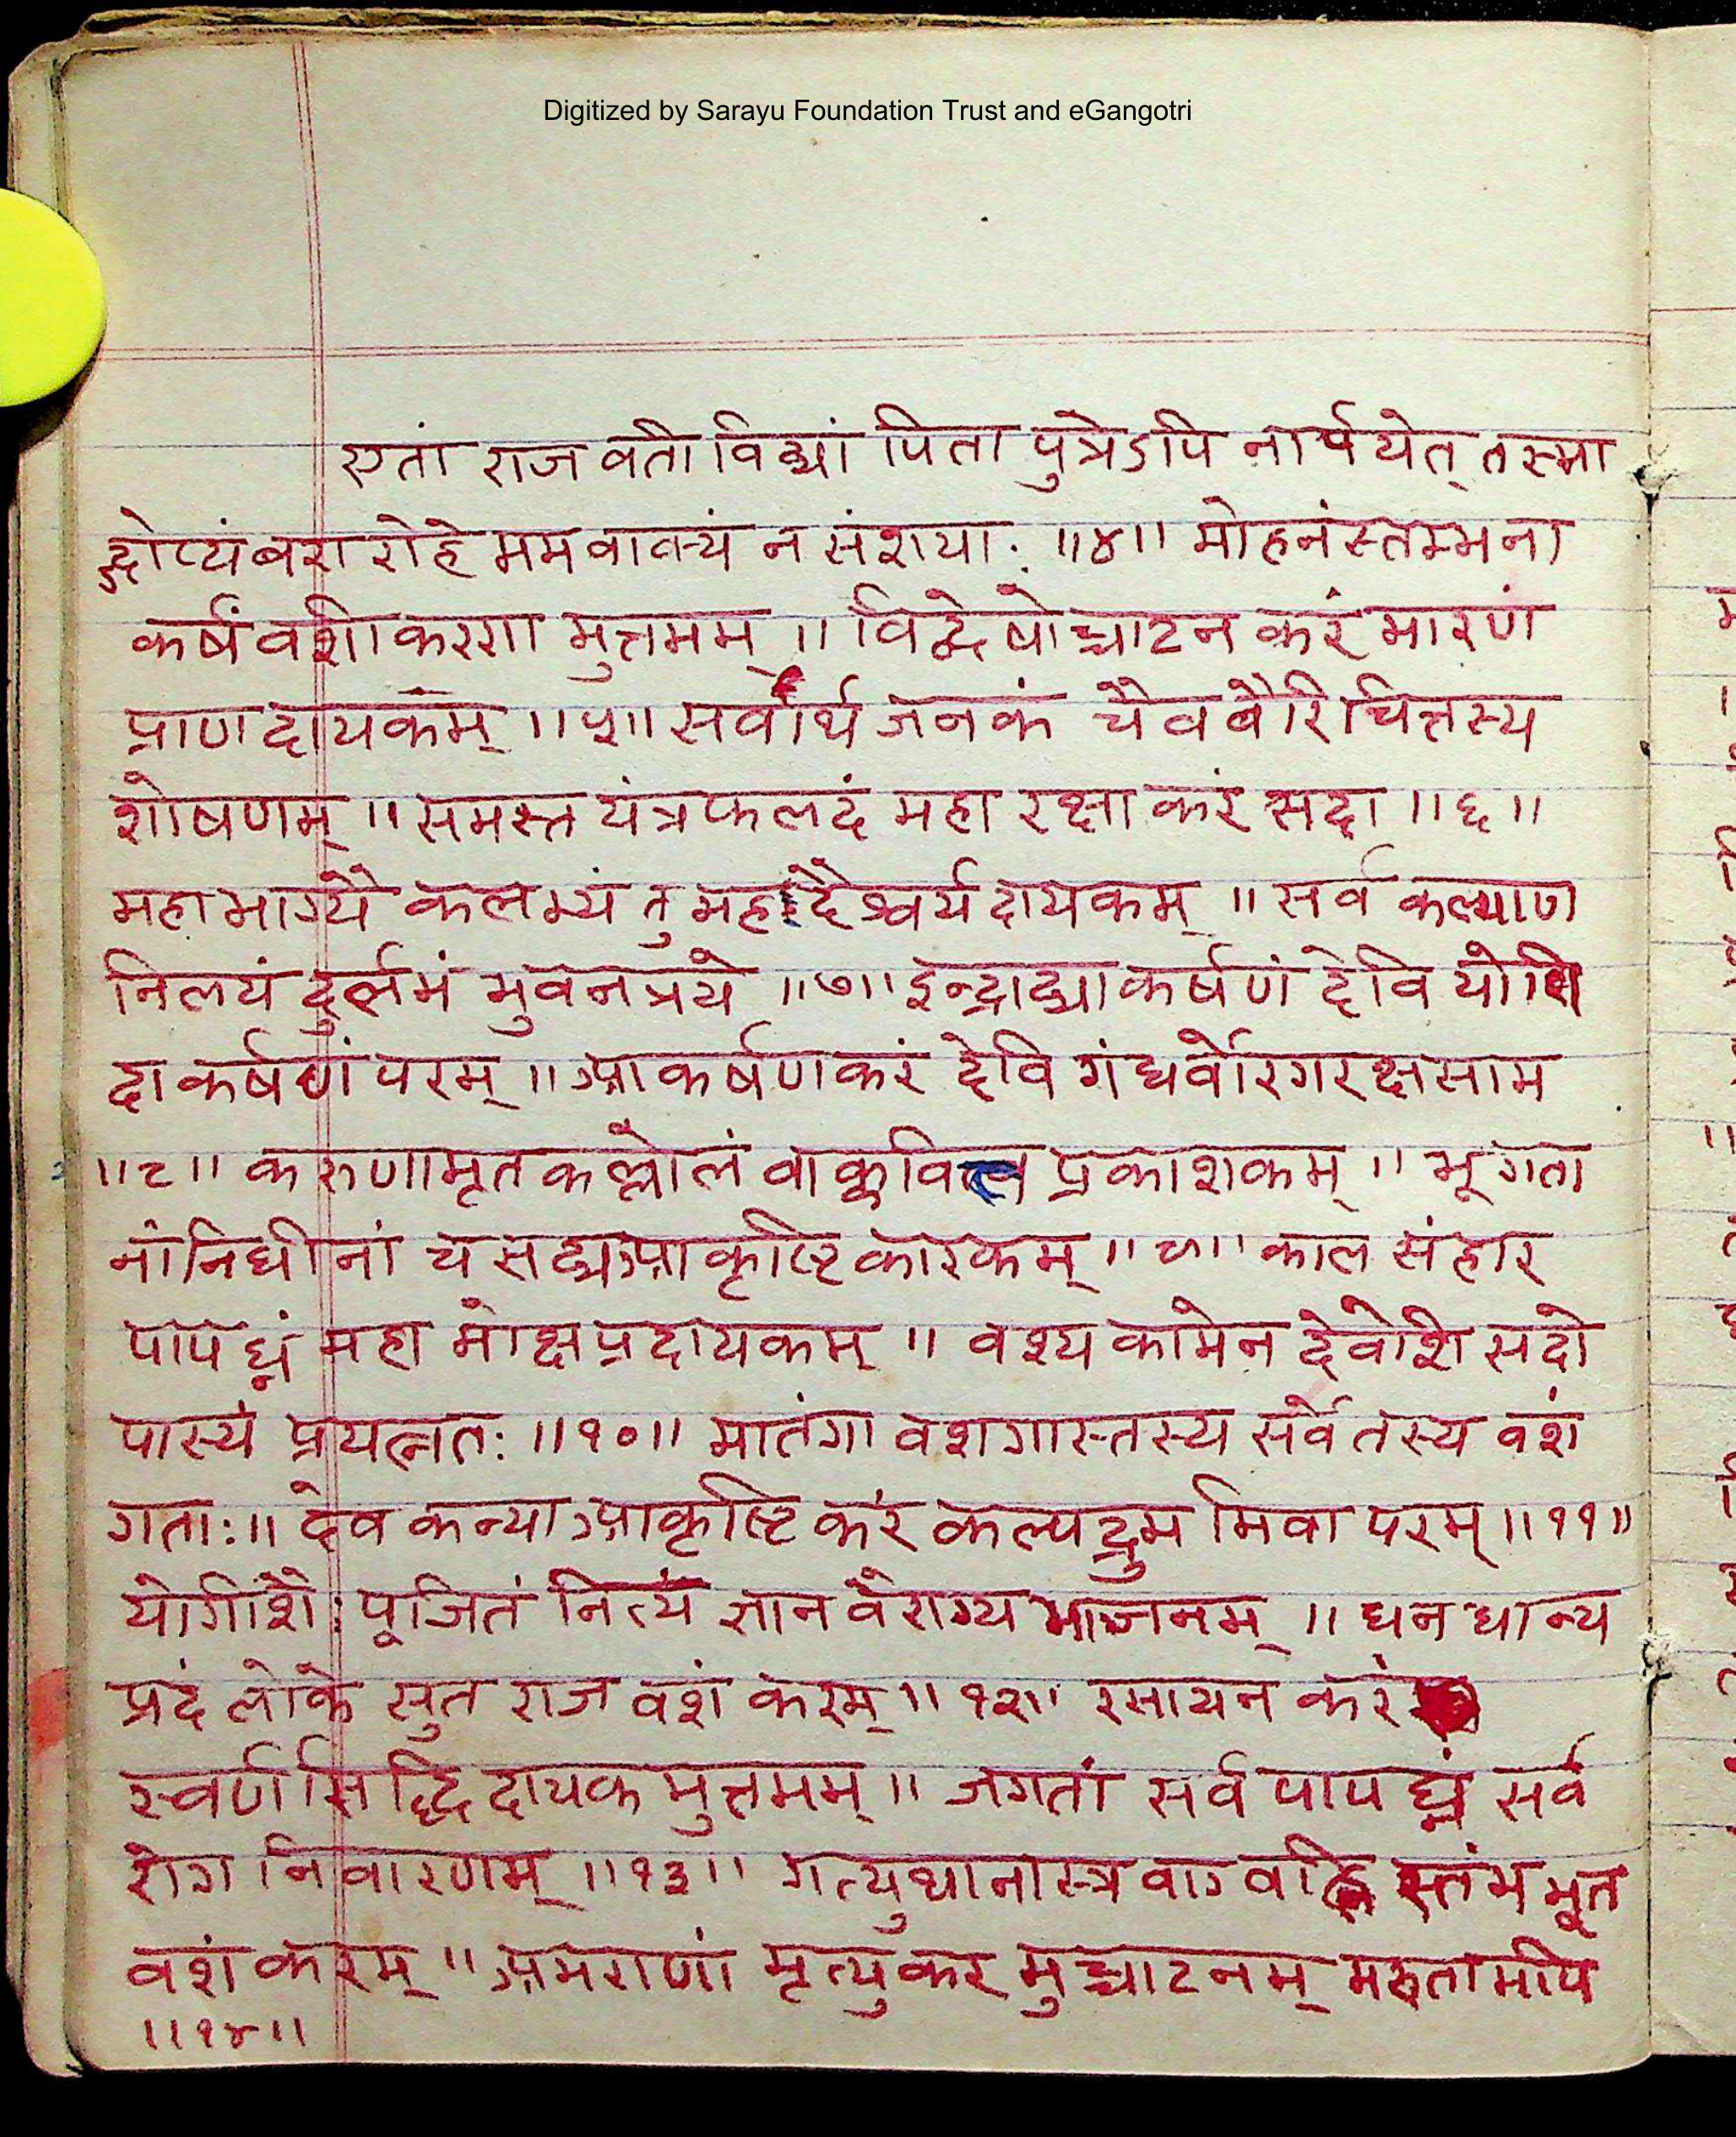 Digitized by Sarayu Foundation Trust and eGangotri
एतां राज वतीं विद्यां पिता पुत्रेऽपि नार्पयेत् तस्मा
द्गोप्यं बरा रोहे मम वाक्यं न संशयाः ॥४॥ मोहनं स्तम्भना
कर्षं वशीकरणा मुत्तमम् ॥ विद्वेषोच्चाटन करं मारणं
प्राणदायकम् ॥५॥ सर्वार्थ जनकं चैव वैरि चित्तस्य
शोषणम् ॥ समस्त यंत्र फलदं महा रक्षा करं सदा ॥६॥
महा भाग्यै कलभ्यं तु महदैश्वर्य दायकम् ॥ सर्व कल्याण
निलयं दुर्लभं भुवनत्रये ॥७॥ इन्द्राद्याकर्षणं देवि योषि
दाकर्षणं परम् ॥ आकर्षणकरं देवि गंधर्वोरगरक्षसाम
॥८॥ करुणामृत कल्लोलं वाक्कवित्व प्रकाशकम् ॥ भूगता
नां निधीनां च सद्य आकृष्टिकारकम् ॥९॥ काल संहार
पापघ्नं महा मोक्षप्रदायकम् ॥ वश्य कामेन देवेशि सदो
पास्यं प्रयत्नतः ॥१०॥ मातंगा वशगास्तस्य सर्वे तस्य वशं
गताः॥ देव कन्या आकृष्टि करं कल्पद्रुम मिवा परम् ॥११॥
योगीशैः पूजितं नित्यं ज्ञान वैराग्य भाजनम् ॥ धन धान्य
प्रदं लोके सुत राज वशं करम् ॥१२॥ रसायन करं
स्वर्ण सिद्धि दायक मुत्तमम् ॥ जगतां सर्व पापघ्नं सर्व
रोग निवारणम् ॥१३॥ गत्युथानास्त्र वाग वह्नि स्तंभ भूत
वशं करम् ॥ अमराणां मृत्युकर मुच्चाटनम् मरुतामपि
॥१४॥